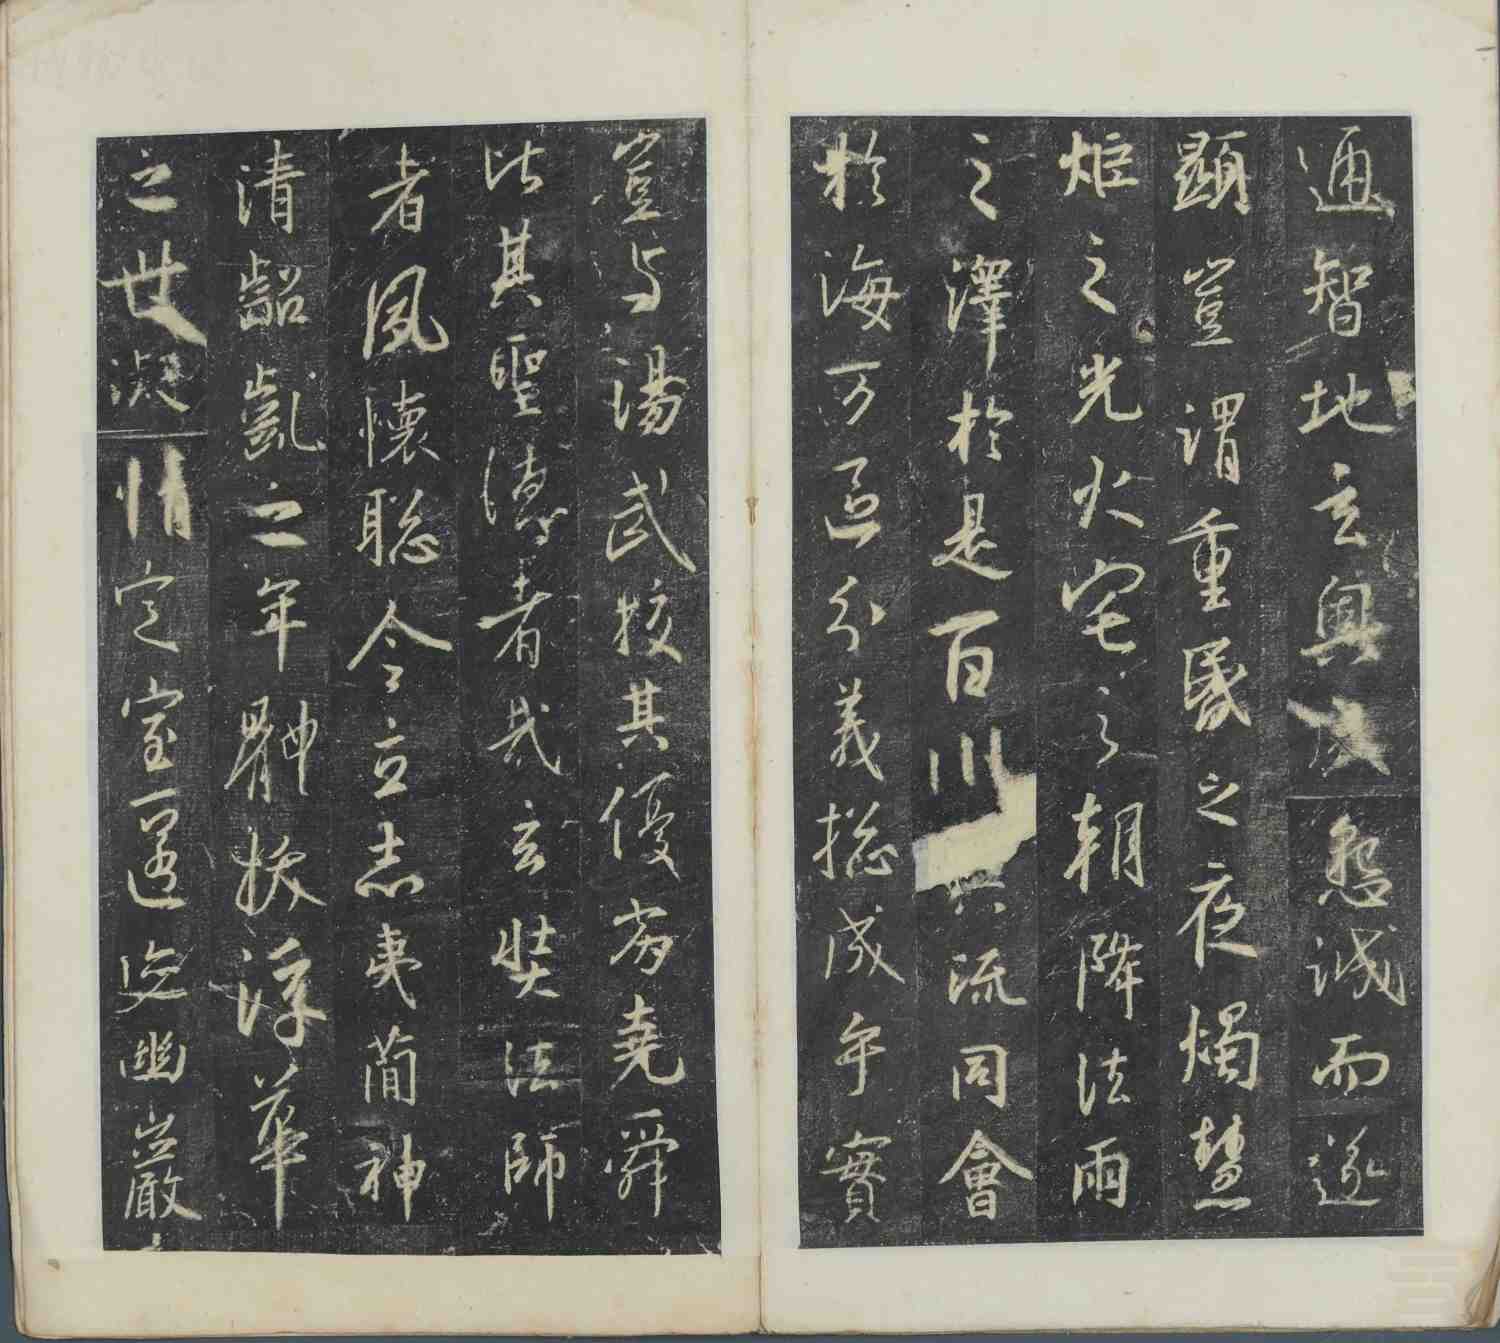 通智地玄奧感懇誠而遂
顯豈謂重昏之夜燭慧
炬之光火宅之朝降法雨
之澤於是百川異流同會
於海万區分義捴成乎實
豈与湯武校其優劣堯舜
比其聖德者哉玄奘法師
者夙懷聰令立志夷簡神
清齠齓之年體拔浮華
之世凝情定室匿迹幽巖